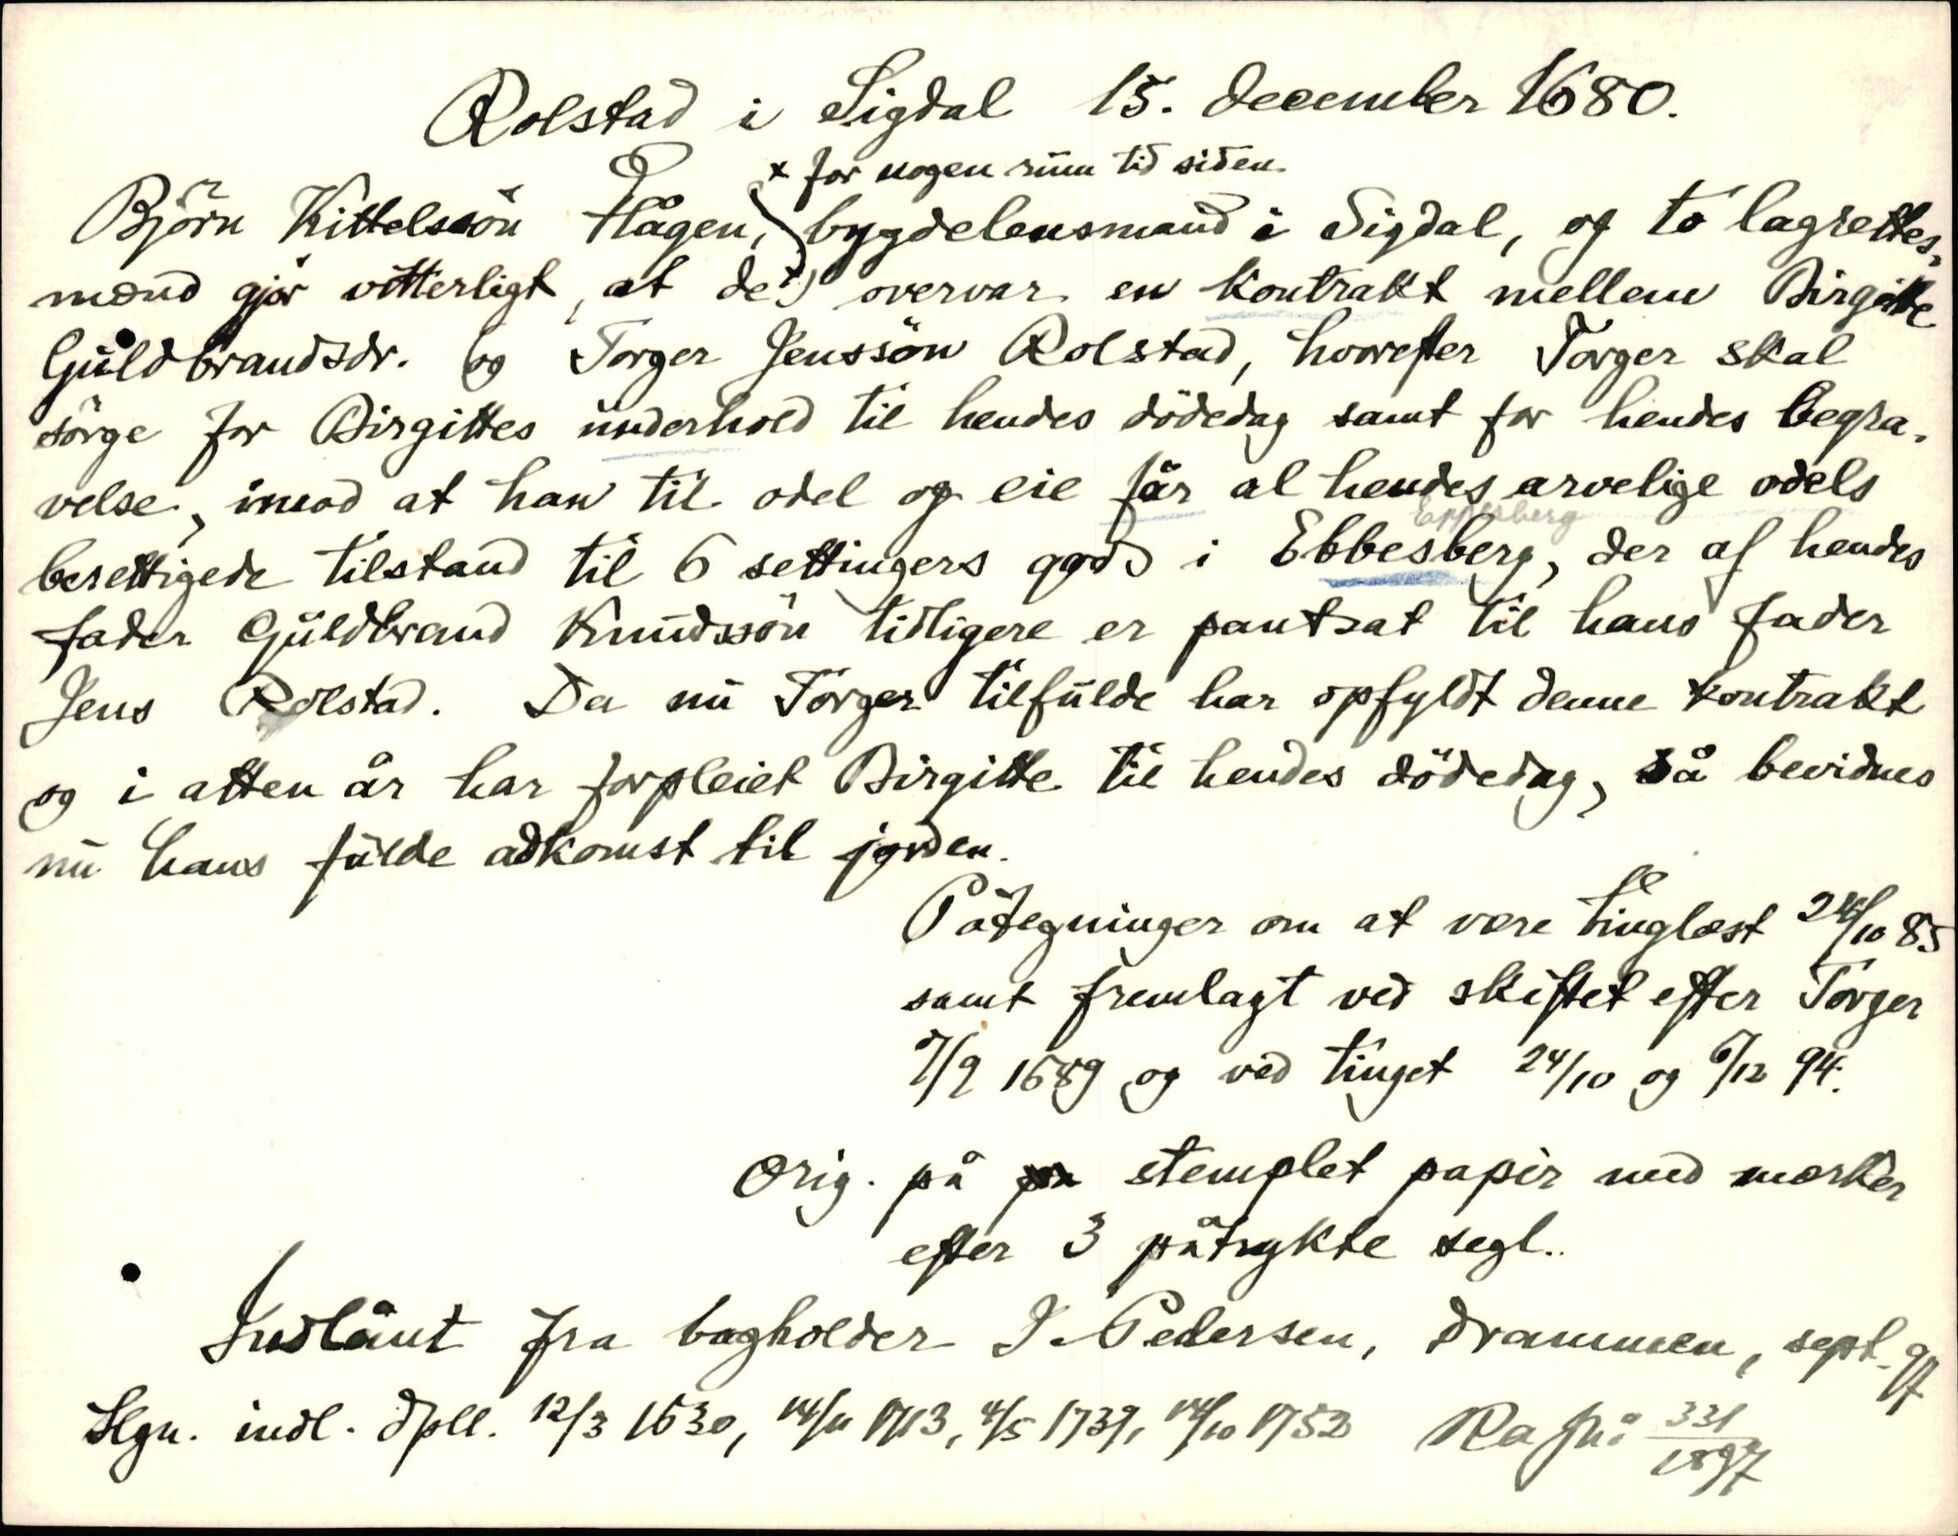 Rolstad i Sigdal 15. december 1680.
x for nogen rum tid siden
Björn Kittelssön Hågen, bygdelensmand i Sigdal, og to lagrettes-
mænd gjör vitterligt, at de x) overvar en kontrakt mellem Birgitte
Guldbrandsdr. og Torger Jenssön Rolstad, hvorefter Torger skal
sörge for Birgittes underhold til hendes dödedag samt for hendes begra-
velse, imod at han til odel og eie får al hendes arvelige odels
Eppesberg
berettigede tilstand til 6 settingers gods i Ebbesberg, der af hendes
fader Guldbrand Knudssön tidligere er pantsat til hans fader
Jens Rolstad. Da nu Torger tilfulde har opfyldt denne kontrakt
og i atten år har forpleiet Birgitte til hendes dödedag, så bevidnes
nu hans fulde adkomst til jorden.
Påtegninger om at være tinglæst 24/10 85
samt fremlagt ved skiftet efter Torger
7/9 1689 og ved tinget 24/10 og 6/12 94.
Orig. på stemplet papir med mærker
efter 3 påtrykte segl.
Indlånt fra bagholder I. Pedersen, Drammen, sept. 97
Slgn. indl. dpll. 12/3 1630, 14/11 1713, 4/5 1739, 14/10 1752 Ra jn: 331/1897